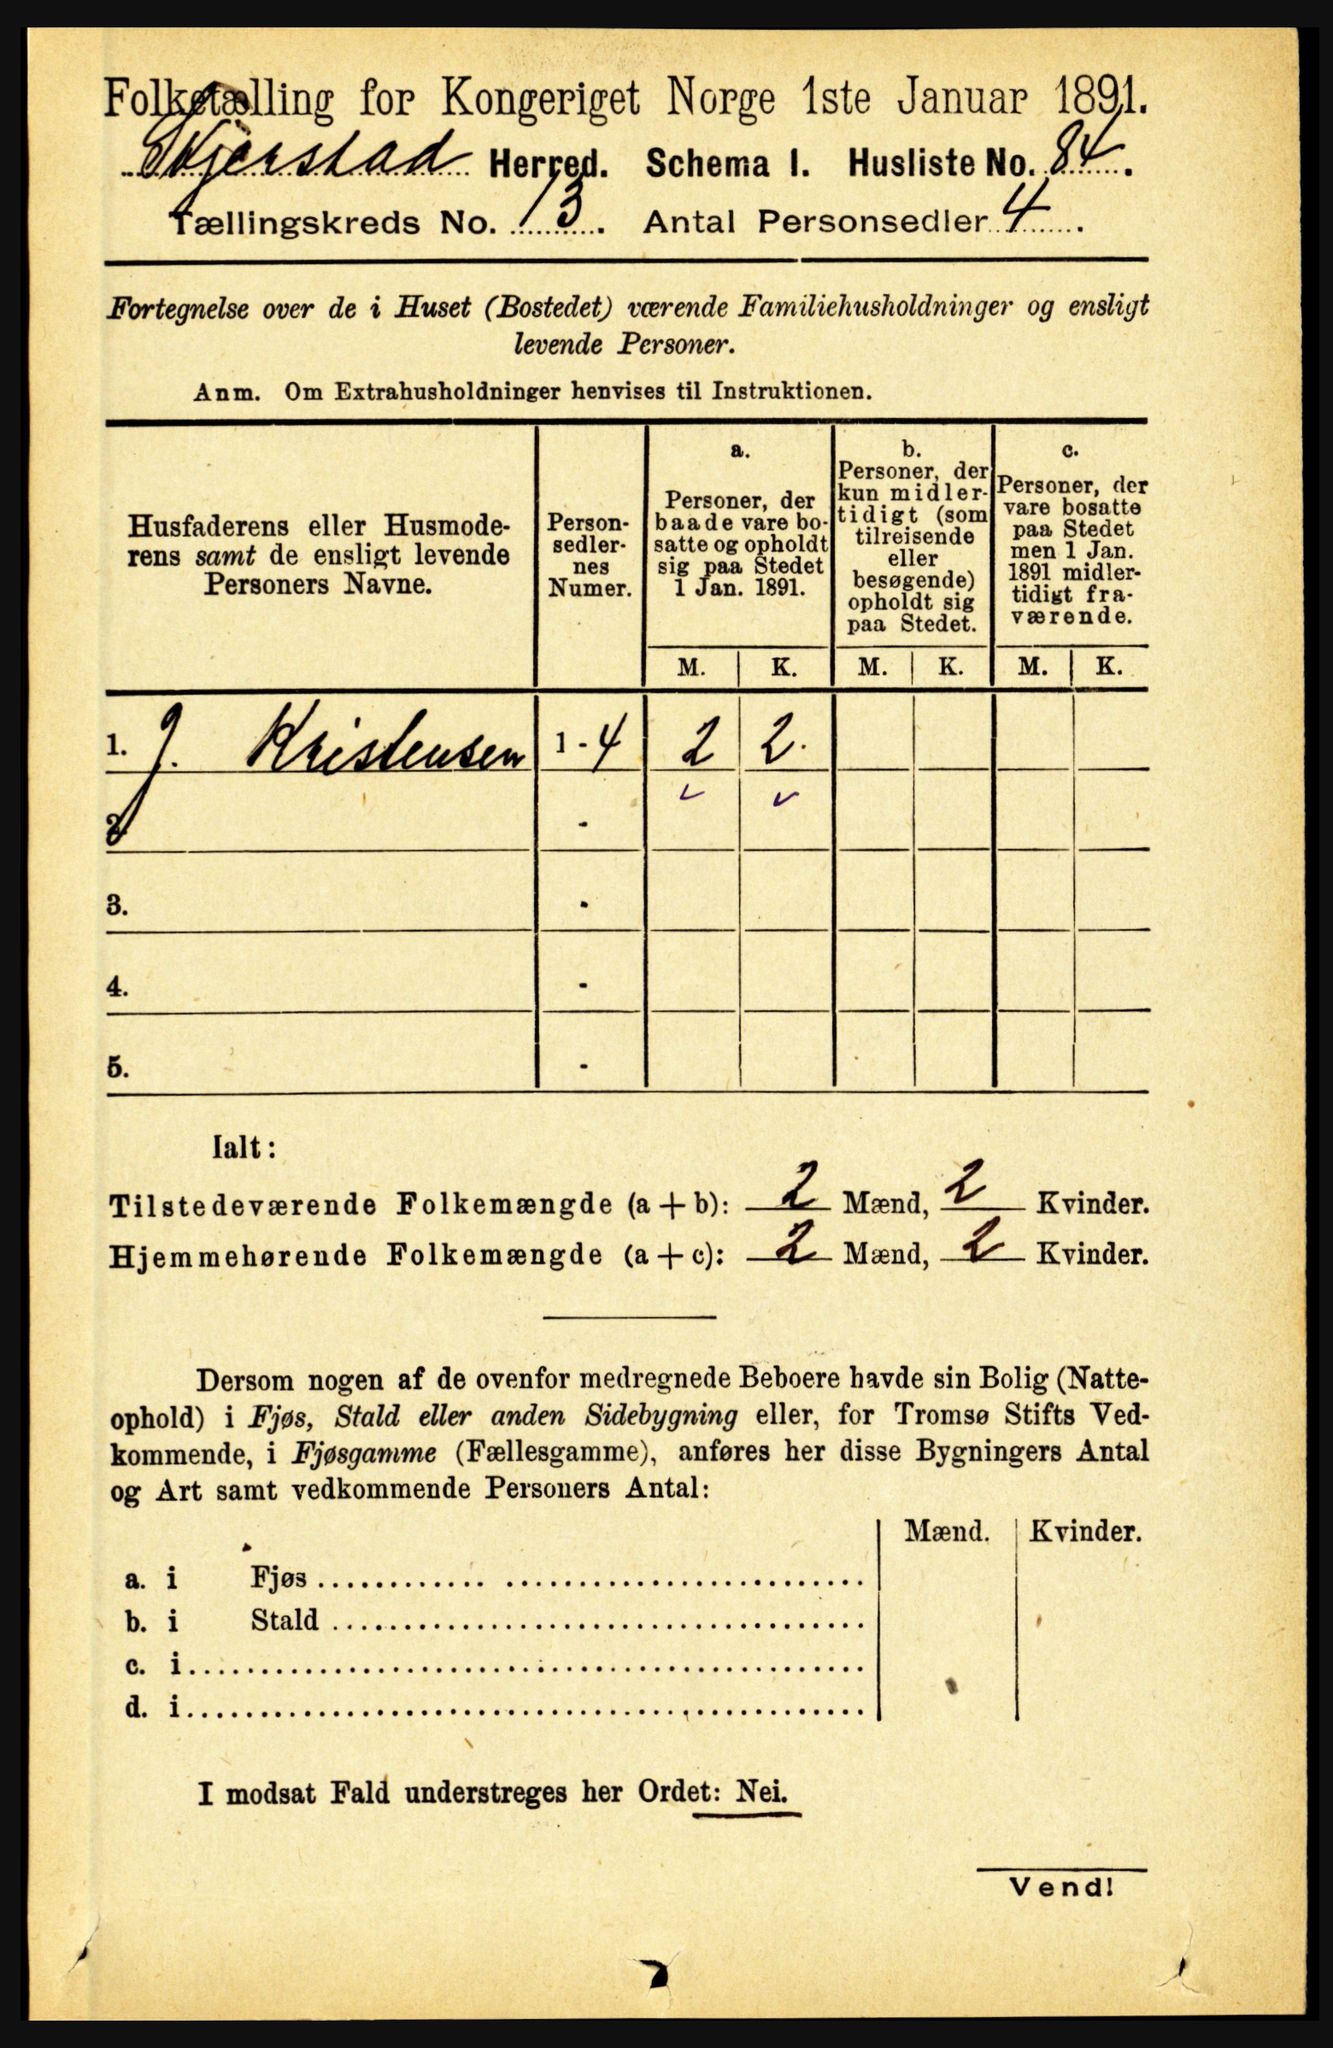 Folketælling for Kongeriget Norge 1ste Januar 1891.
Skjerstad Herred. Schema I. Husliste No. 84.
Tællingskreds No. 13. Antal Personsedler 4.
Fortegnelse over de i Huset (Bostedet) værende Familiehusholdninger og ensligt
levende Personer.
Anm. Om Extrahusholdninger henvises til Instruktionen.
Husfaderens eller Husmode-
rens samt de ensligt levende
Personers Navne.
Person-
sedler-
nes
Numer.
a.
Personer, der
baade vare bo-
satte og opholdt
sig paa Stedet
1 Jan. 1891.
b.
Personer, der
kun midler-
tidigt (som
tilreisende
eller
besøgende)
opholdt sig
paa Stedet.
c.
Personer, der
vare bosatte
paa Stedet
men 1 Jan.
1891 midler-
tidigt fra-
værende.
M. K. M. K. M. K.
1. J. Kristensen 1 - 4 2 2.
2. -
3. -
4. -
5. -
Ialt:
Tilstedeværende Folkemængde (a + b): 2 Mænd, 2 Kvinder.
Hjemmehørende Folkemængde (a + c): 2 Mænd, 2 Kvinder.
Dersom nogen af de ovenfor medregnede Beboere havde sin Bolig (Natte-
ophold) i Fjøs, Stald eller anden Sidebygning eller, for Tromsø Stifts Ved-
kommende, i Fjøsgamme (Fællesgamme), anføres her disse Bygningers Antal
og Art samt vedkommende Personers Antal:
Mænd. Kvinder.
a. i Fjøs
b. i Stald
c. i
d. i
I modsat Fald understreges her Ordet: Nei.
Vend!